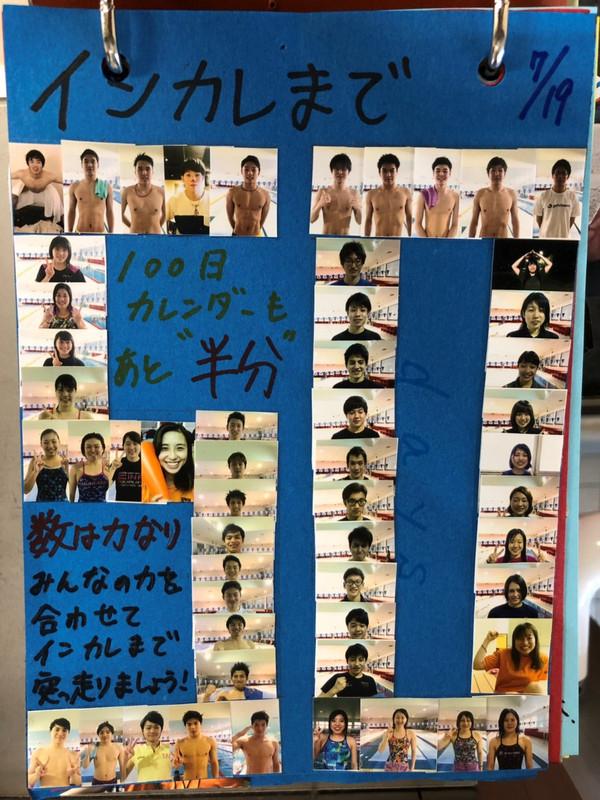 インカレまで
7/19
100日
カレンダーも
あと"半分"
days
数は力なり
みんなの力を
合わせて
インカレまで
突っ走りましょう!